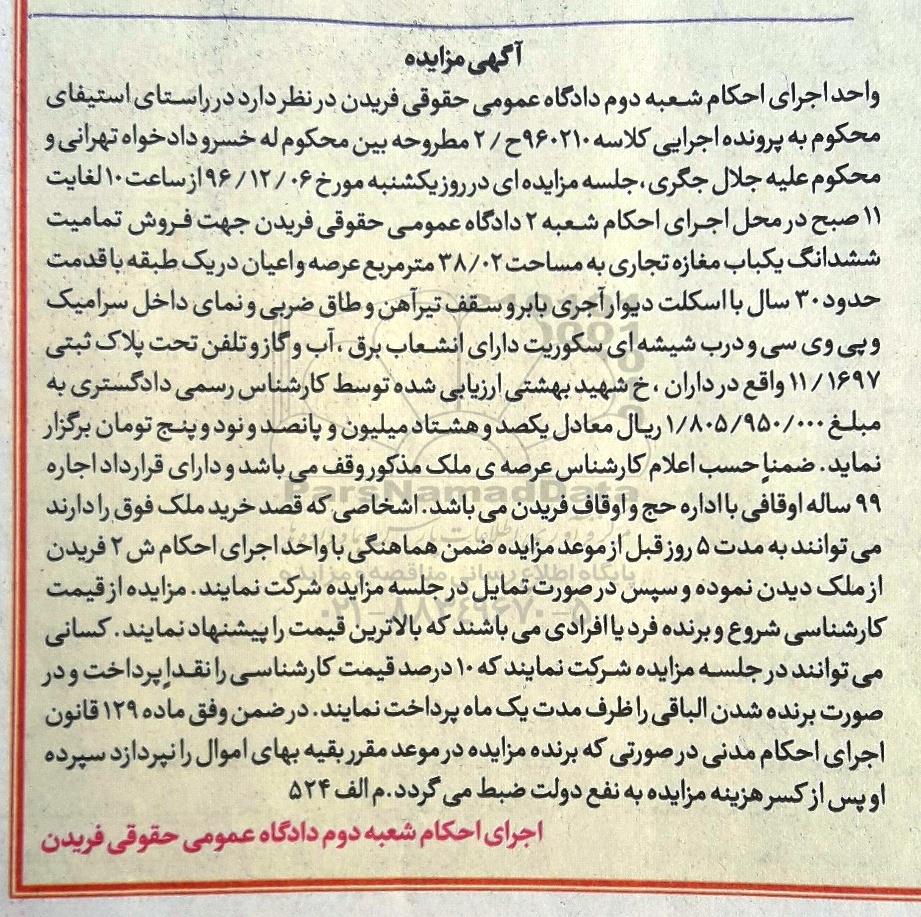 آگهی مزایده
واحد اجرای احکام شعبه دوم دادگاه عمومی حقوقی فریدن در نظر دارد در راستای استیفای
محکوم به پرونده اجرایی کلاسه ۹۶۰۲۱۰ح/۲ مطروحه بین محکوم له خسرو دادخواه تهرانی و
محکوم علیه جلال جگری، جلسه مزایده ای در روز یکشنبه مورخ ۹۶/۱۲/۰۶ از ساعت ۱۰ لغایت
۱۱ صبح در محل اجرای احکام شعبه ۲ دادگاه عمومی حقوقی فریدن جهت فروش تمامیت
ششدانگ یکباب مغازه تجاری به مساحت ۳۸/۰۲ مترمربع عرصه و اعیان در یک طبقه با قدمت
حدود ۳۰ سال با اسکلت دیوار آجری بابر و سقف تیرآهن و طاق ضربی و نمای داخل سرامیک
و پی وی سی و درب شیشه ای سکوریت دارای انشعاب برق، آب و گاز و تلفن تحت پلاک ثبتی
۱۱/۱۶۹۷ واقع در داران، خ شهید بهشتی ارزیابی شده توسط کارشناس رسمی دادگستری به
مبلغ ۱/۸۰۵/۹۵۰/۰۰۰ ریال معادل یکصد و هشتاد میلیون و پانصد و نود و پنج تومان برگزار
نماید. ضمناً حسب اعلام کارشناس عرصه ی ملک مذکور وقف می باشد و دارای قرارداد اجاره
۹۹ ساله اوقافی با اداره حج و اوقاف فریدن می باشد. اشخاصی که قصد خرید ملک فوق را دارند
می توانند به مدت ۵ روز قبل از موعد مزایده ضمن هماهنگی با واحد اجرای احکام ش ۲ فریدن
از ملک دیدن نموده و سپس در صورت تمایل در جلسه مزایده شرکت نمایند. مزایده از قیمت
کارشناسی شروع و برنده فرد یا افرادی می باشند که بالاترین قیمت را پیشنهاد نمایند. کسانی
می توانند در جلسه مزایده شرکت نمایند که ۱۰ درصد قیمت کارشناسی را نقداً پرداخت و در
صورت برنده شدن الباقی را ظرف مدت یک ماه پرداخت نمایند. در ضمن وفق ماده ۱۲۹ قانون
اجرای احکام مدنی در صورتی که برنده مزایده در موعد مقرر بقیه بهای اموال را نپردازد سپرده
او پس از کسر هزینه مزایده به نفع دولت ضبط می گردد. م الف ۵۲۴
اجرای احکام شعبه دوم دادگاه عمومی حقوقی فریدن
ParsNamadData
پایگاه اطلاع رسانی مناقصه و مزایده
۰۲۱-۸۸۳۴۹۶۷۰-۵